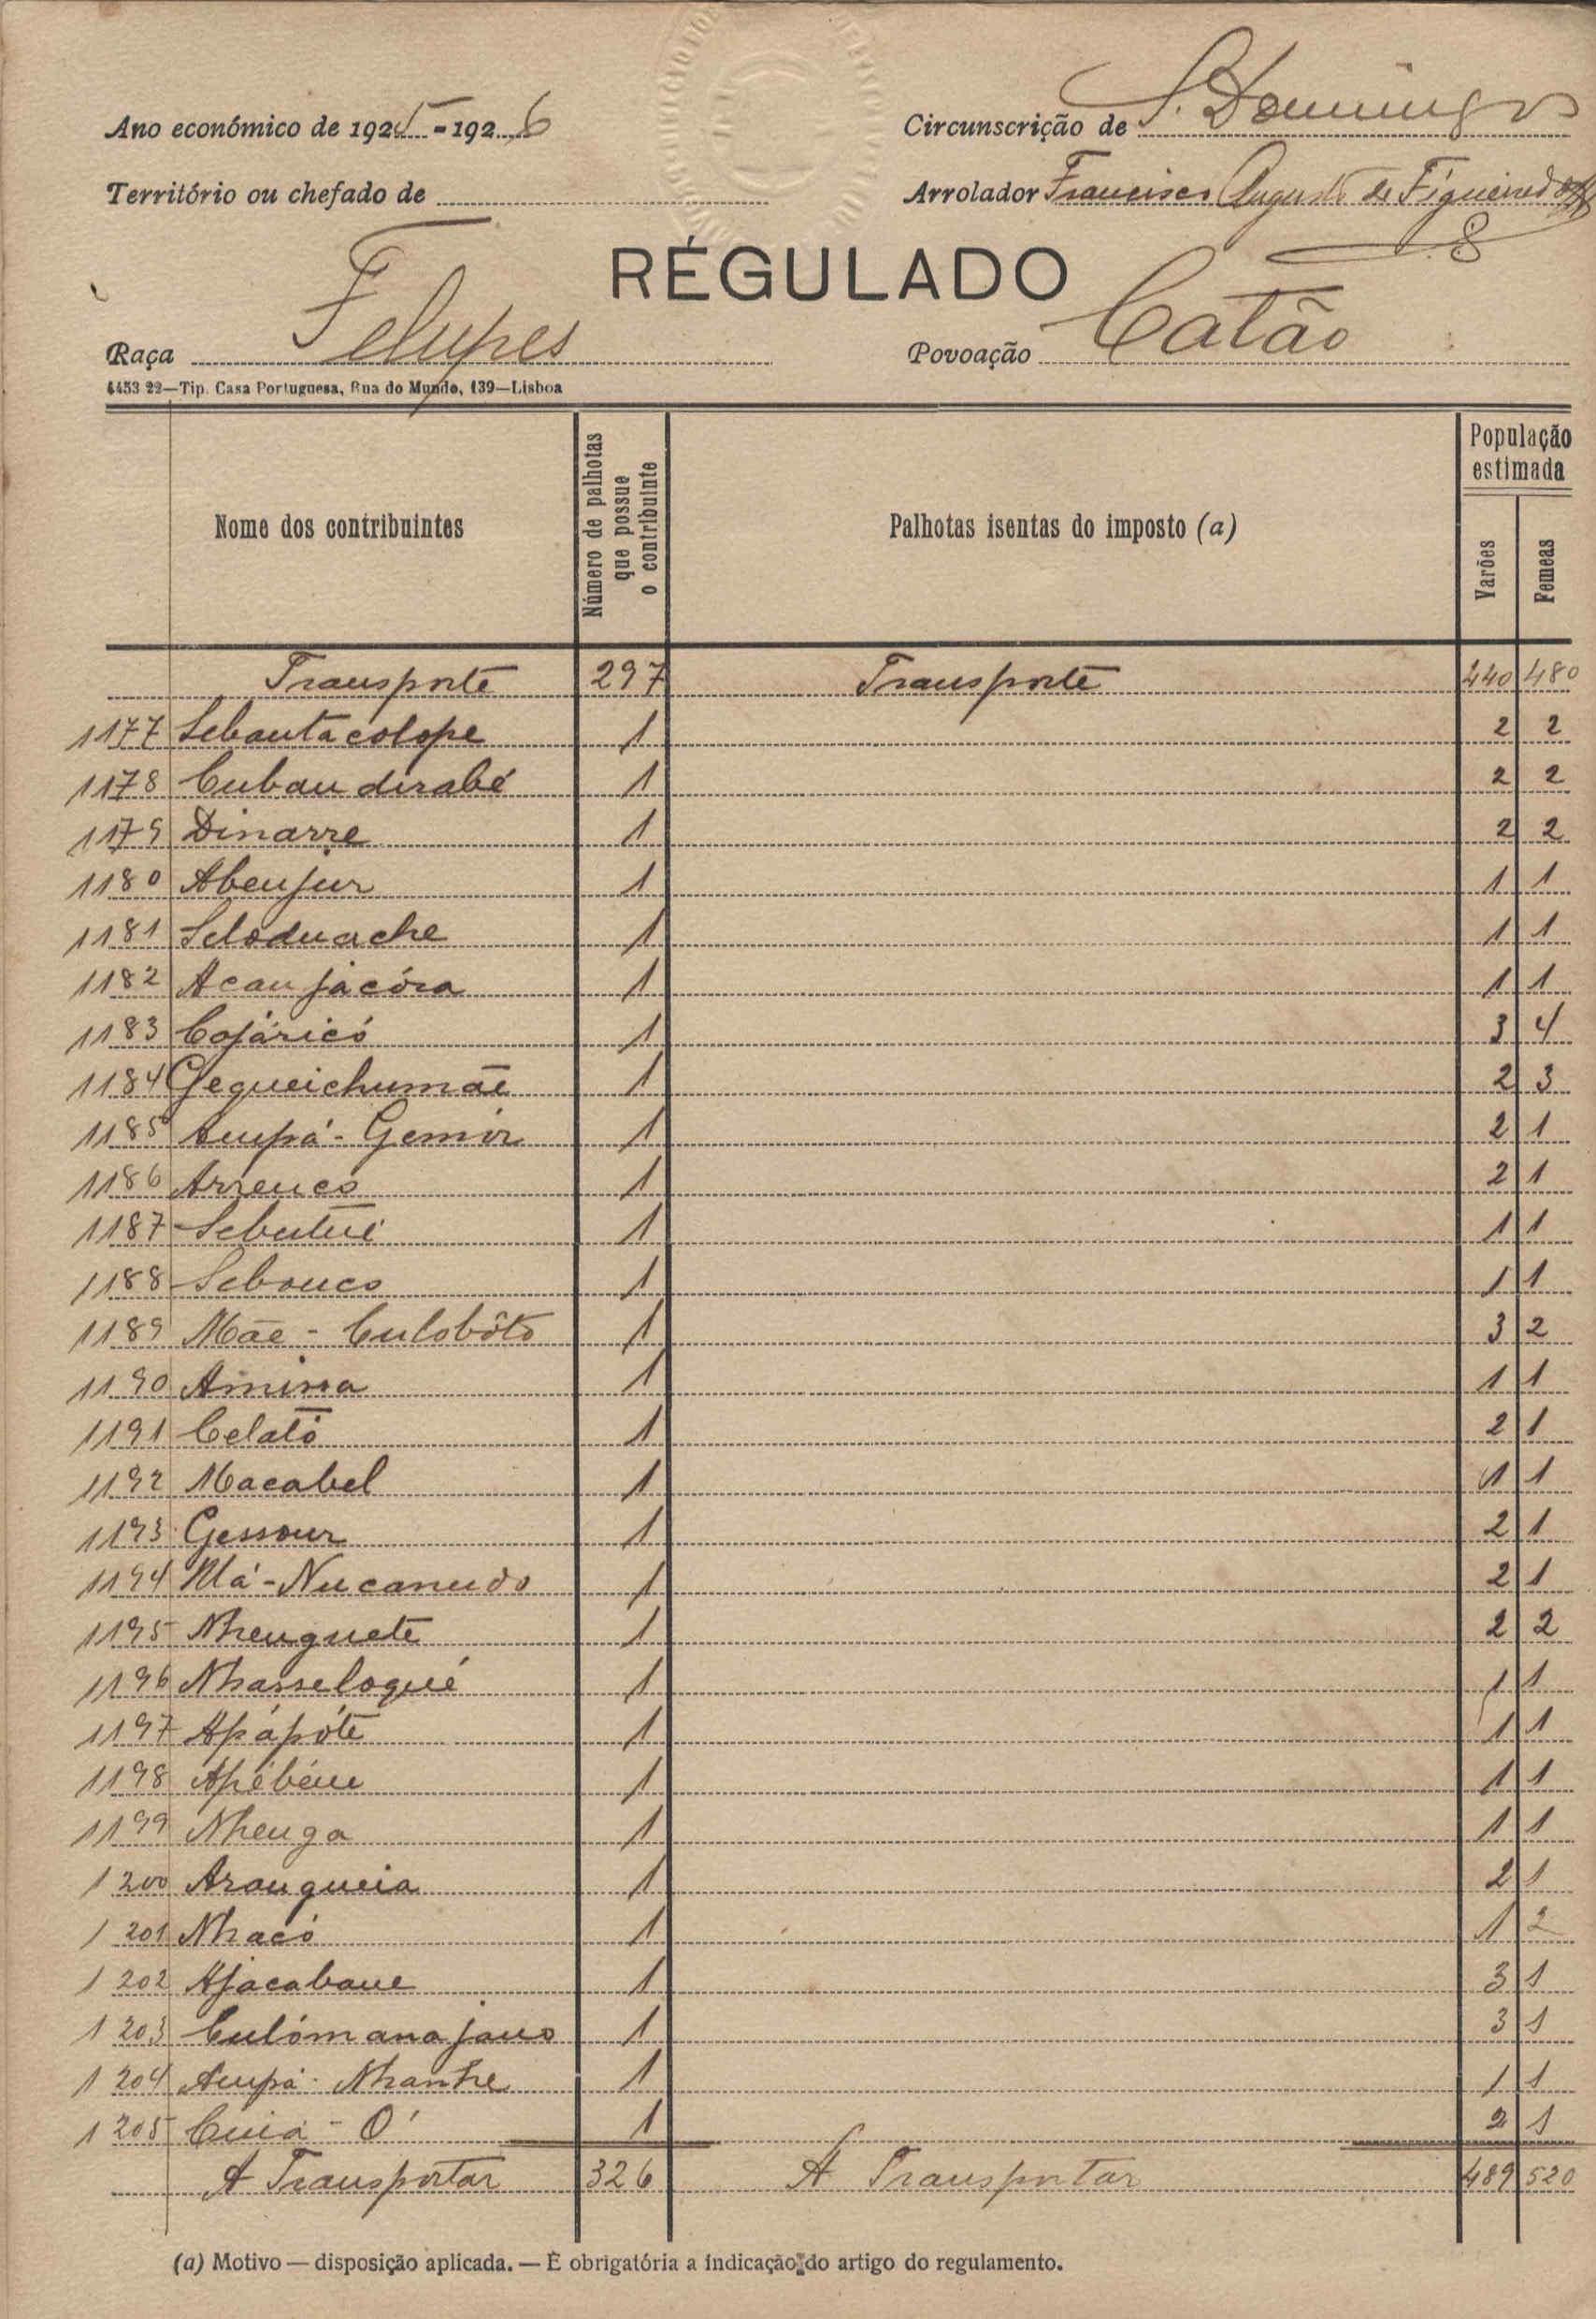 Ano económico de 1925-1926
Circunscrição de S. Domingos
Território ou chefado de
Arrolador Francisco Augusto de Figueiredo
8
RÉGULADO
Raça Felupes
Povoação Catão
4453 22—Tip. Casa Portuguesa, Rua do Mundo, 139—Lisboa
Nome dos contribuintes
Número de palhotas que possue o contribuinte
Palhotas isentas do imposto (a)
População estimada
Varões
Femeas
Transporte 297 Transporte 440 480
1177 Sebantacolope 1 2 2
1178 Cubau dirabé 1 2 2
1179 Dinarre 1 2 2
1180 Abeujur 1 1 1
1181 Seloduache 1 1 1
1182 Acau jacóra 1 1 1
1183 Cojáricó 1 3 4
1184 Gequeichumãe 1 2 3
1185 Aupá-Gemir 1 2 1
1186 Arrenco 1 2 1
1187 Sebutué 1 1 1
1188 Sebouco 1 1 1
1189 Mãe - Culobôto 1 3 2
1190 Amina 1 1 1
1191 Celató 1 2 1
1192 Macabel 1 1 1
1193 Gessour 1 2 1
1194 Má-Nucanudo 1 2 1
1195 Nhenguete 1 2 2
1196 Nhasseloqué 1 1 1
1197 Apápóte 1 1 1
1198 Apébéue 1 1 1
1199 Nhenga 1 1 1
1200 Arongueia 1 2 1
1201 Nhacó 1 1 2
1202 Ajacabane 1 3 1
1203 Culómanajano 1 3 1
1204 Aupá-Nhanhe 1 1 1
1205 Cuiá - O' 1 2 1
A Transportar 326 A Transportar 489 520
(a) Motivo — disposição aplicada. — É obrigatória a indicação do artigo do regulamento.